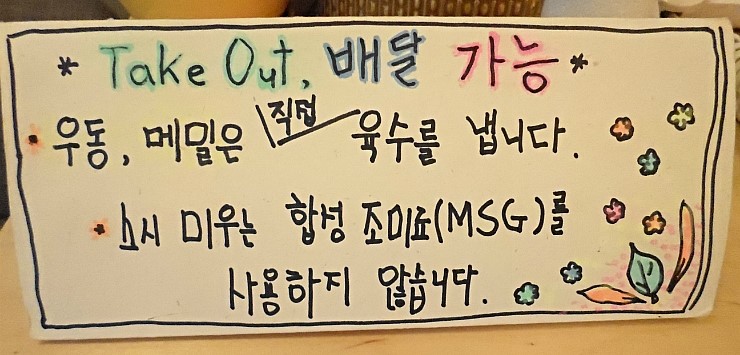 * Take Out, 배달 가능 *
우동, 메밀은 직접 육수를 냅니다.
스시 미우는 합성 조미료(MSG)를
사용하지 않습니다.